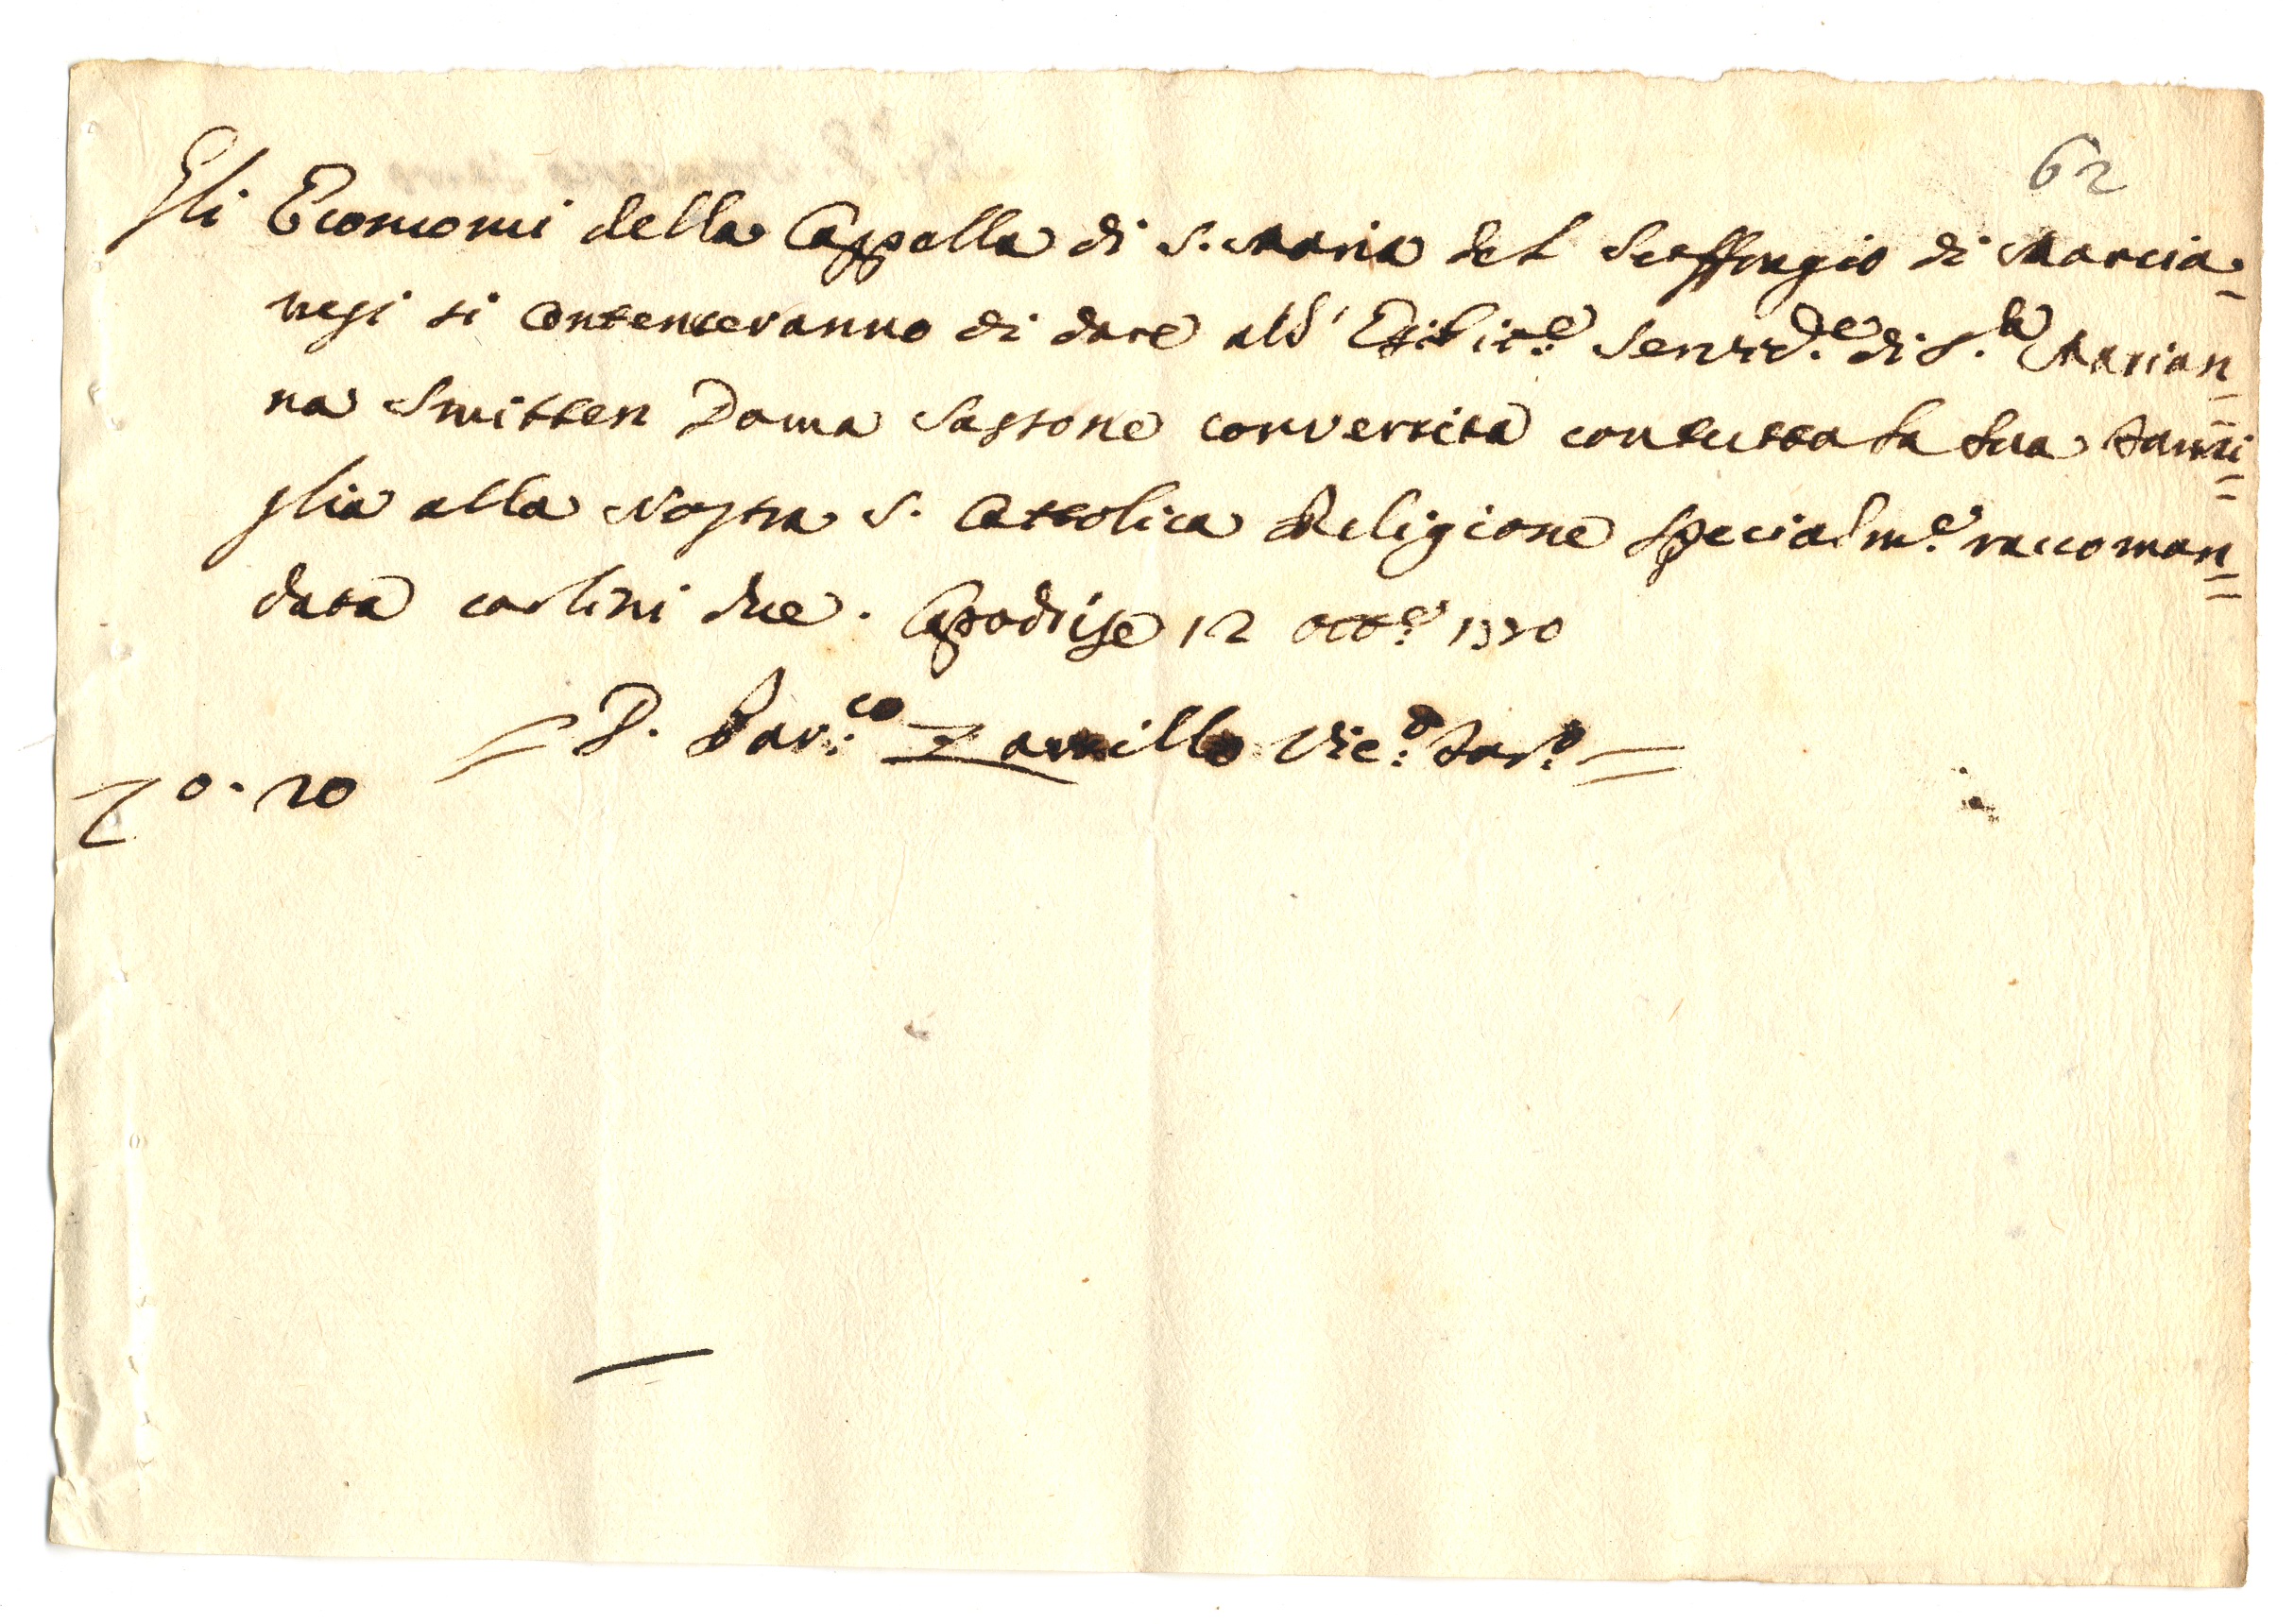 62
Gli Economi della Cappella di S. Maria del Suffragio di Marcia-
nesi si contenteranno di dare all' Esibit.e Servid.e di S.ra Marian=
na Smitten Dama Sassone convertita con tutta la sua Fami=
glia alla Nostra S. Cattolica Religione specialm.e raccoman=
data carlini due. Capodrise 12 Ott.e 1770
= D. Par.co Zarrillo Vic.o For.o =
0.20